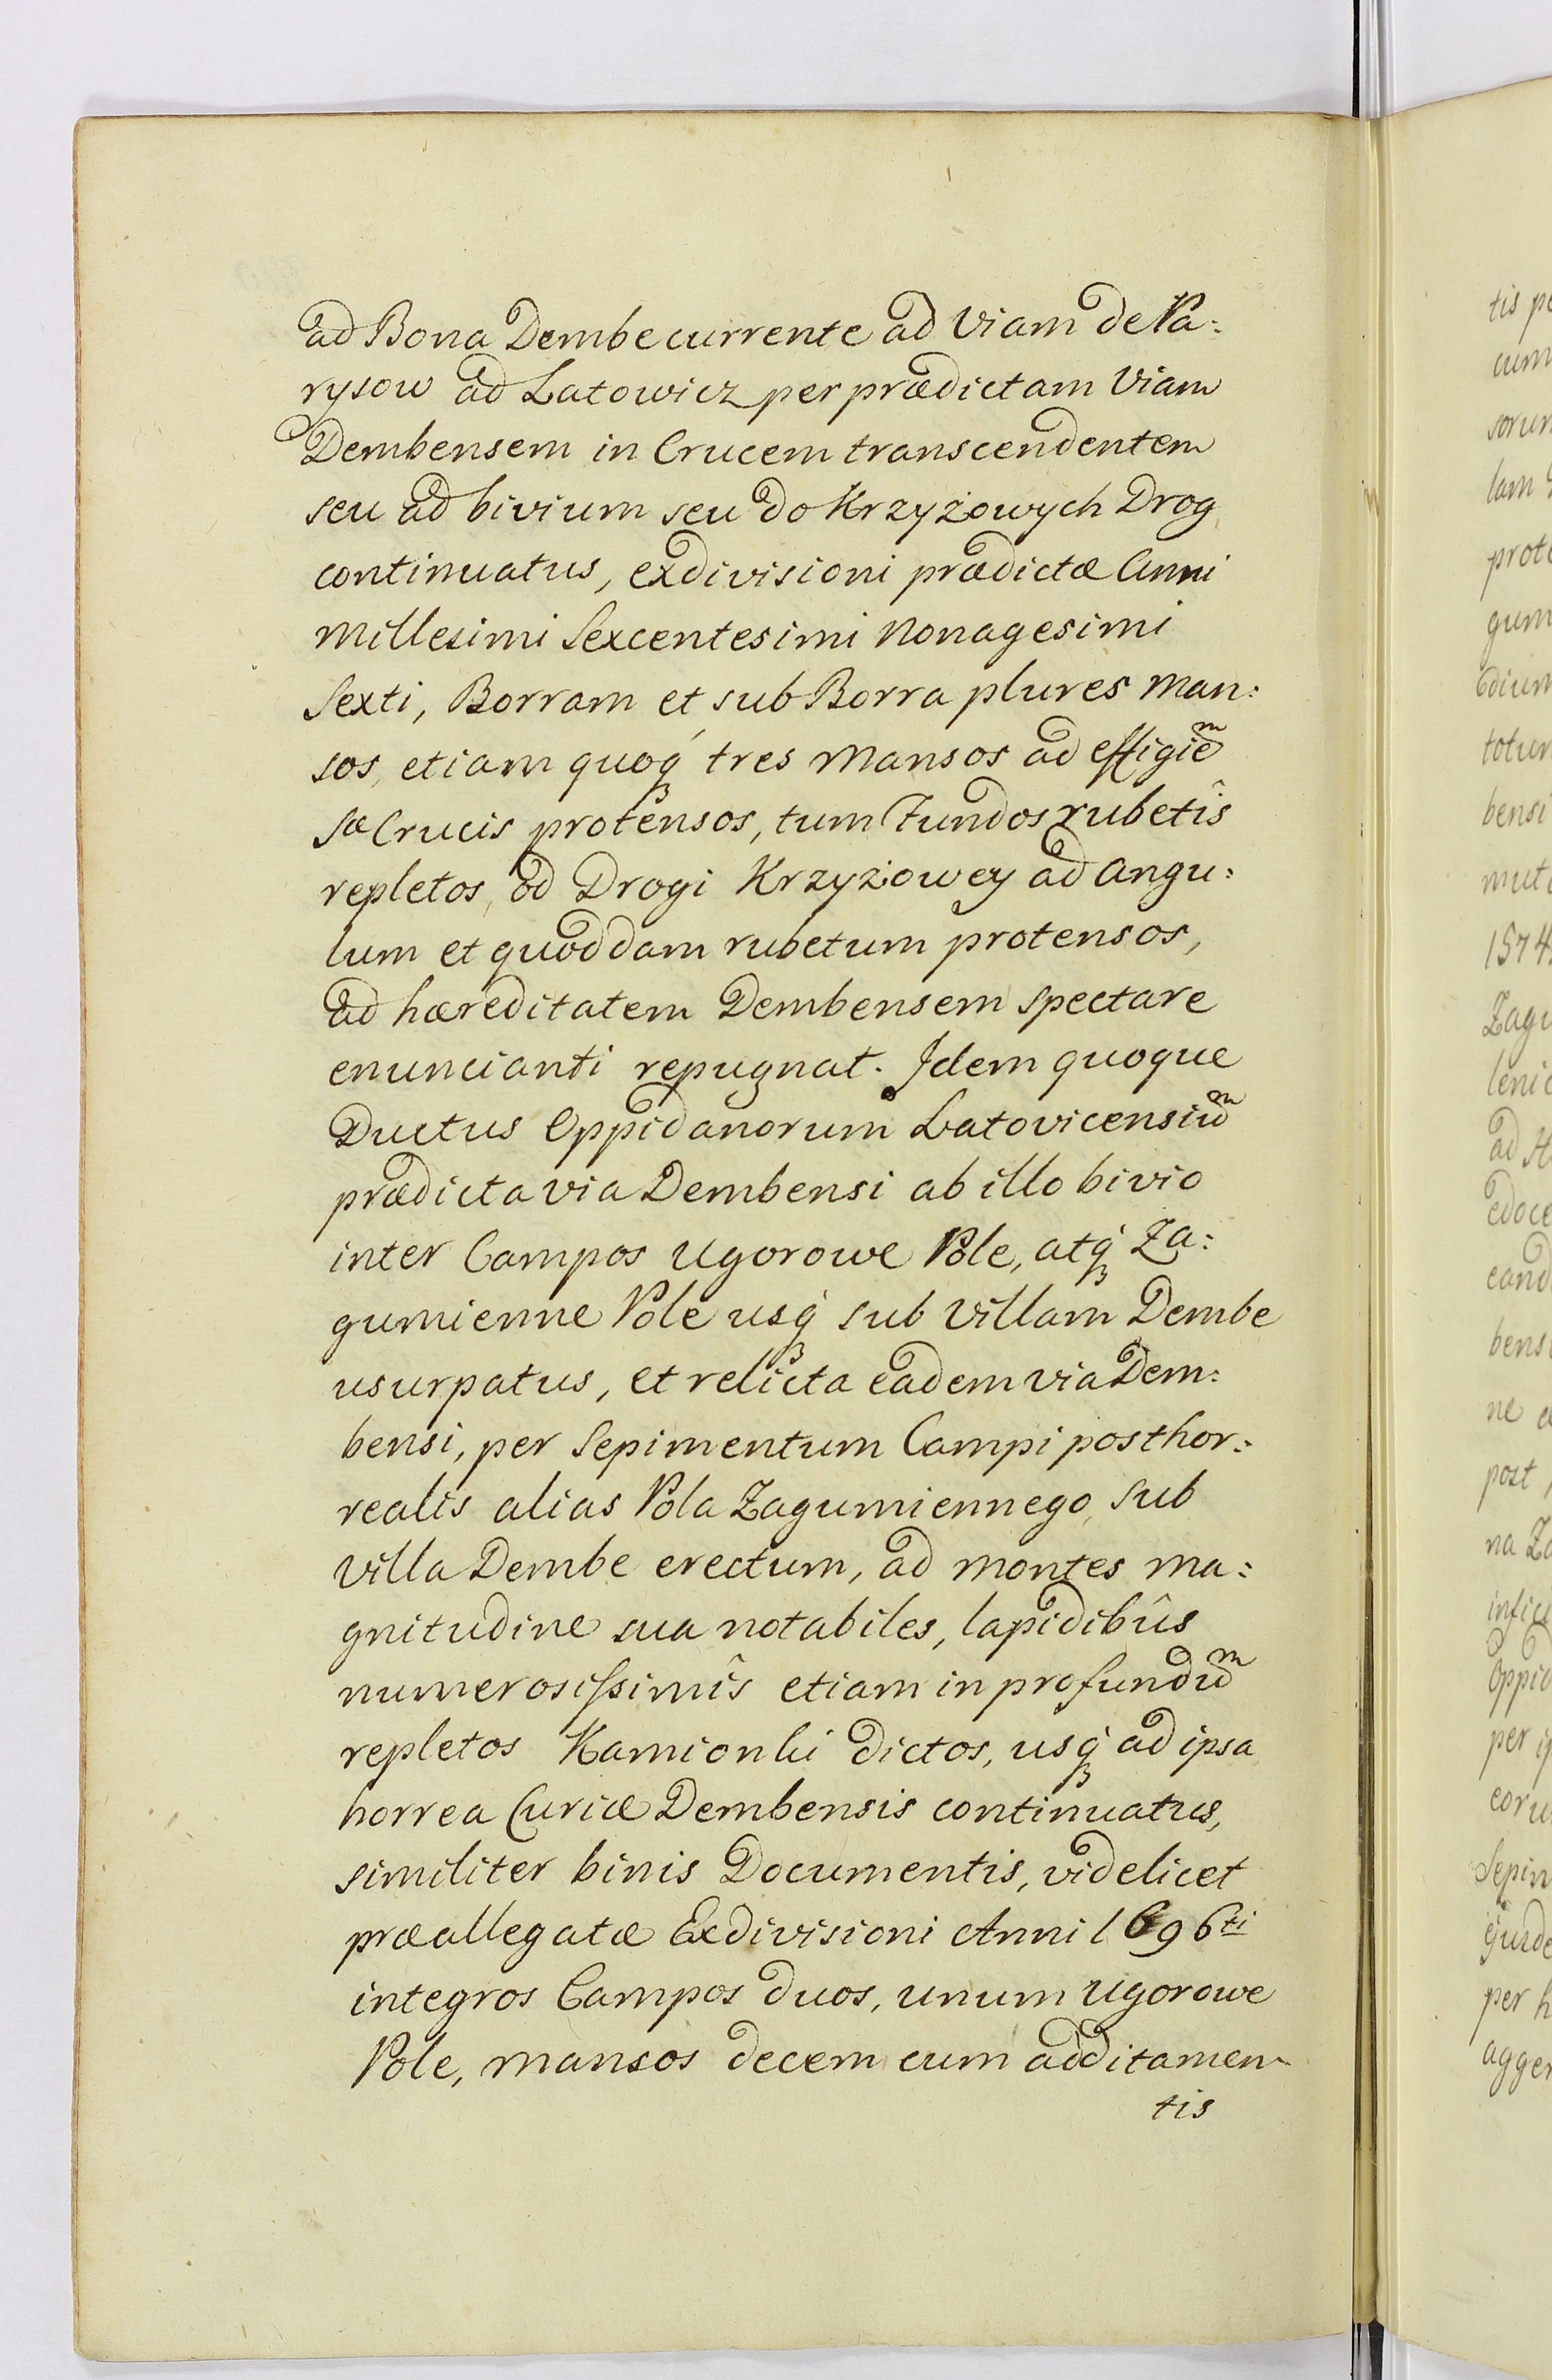 ad Bona Dembe currente ad Viam de Pa:
rysow ad Latowicz per prædictam Viam
Dembensem in Crucem transcendentem
seu ad bivium seu do Krzyżowych Drog
continuatus, exdivisioni prædictæ Anni
Millesimi Sexcentesimi Nonagesimi
Sexti, Borram et sub Borra plures Man:
sos, etiam quoq́ tres Mansos ad effigiem̃
Sæ Crucis protensos, tum Fundos rubetîs
repletos, od Drogi Krzyżowey ad Angu:
lum et quoddam rubetum protensos,
ad hæreditatem Dembensem spectare
enuncianti repugnat. Idem quoque
Ductus Oppidanorum Latovicensium̃
prædicta via Dembensi ab illo bivio
inter Campos Ugorowe Pole, atq́ Za:
gumienne Pole usq́ sub Villam Dembe
usurpatus, et relicta eadem via Dem:
bensi, per Sepimentum Campi posthor:
realis alias Pola Zagumiennego, sub
Villa Dembe erectum, ad montes ma:
gnitudine sua notabiles, lapidibûs
numerosissimîs etiam in profundum̃
repletos Kamionki dictos, usq́ ad ipsa
horrea Curiæ Dembensis continuatus,
similiter binis Documentis, videlicet
præallegatæ Exdivisioni Anni 1696ti
integros Campos duos, unum Ugorowe
Pole, mansos decem cum additamen-
tis